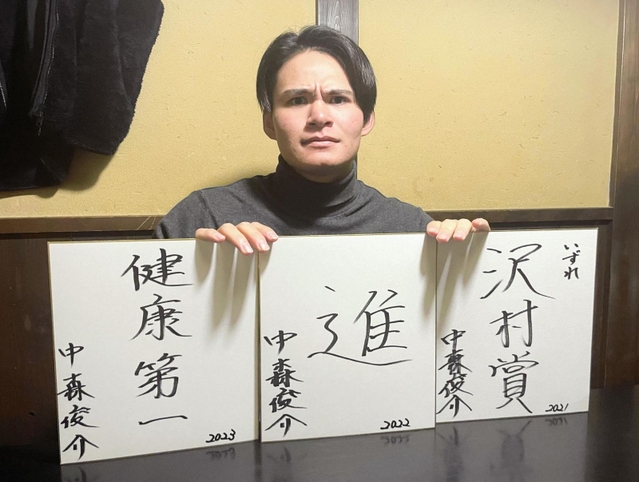 いずれ
沢村賞
中森俊介
2021
進
中森俊介
2022
健康第一
中森俊介
2023